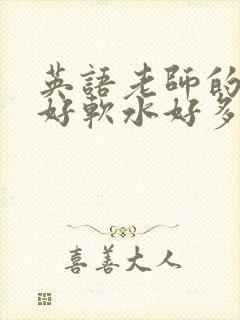 英語老師的
好軟水好多
喜善大人